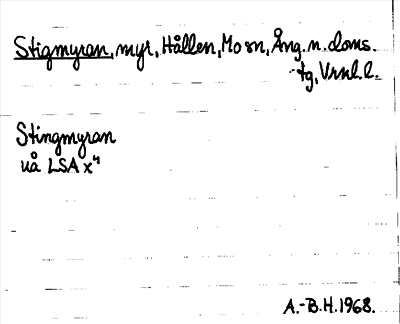 Stigmyran, myr, Hållen, Mo sn, Ång. n. doms.
tg, Vrnl. l.
Stingmyran
uå LSA x⁴
A.-B.H. 1968.